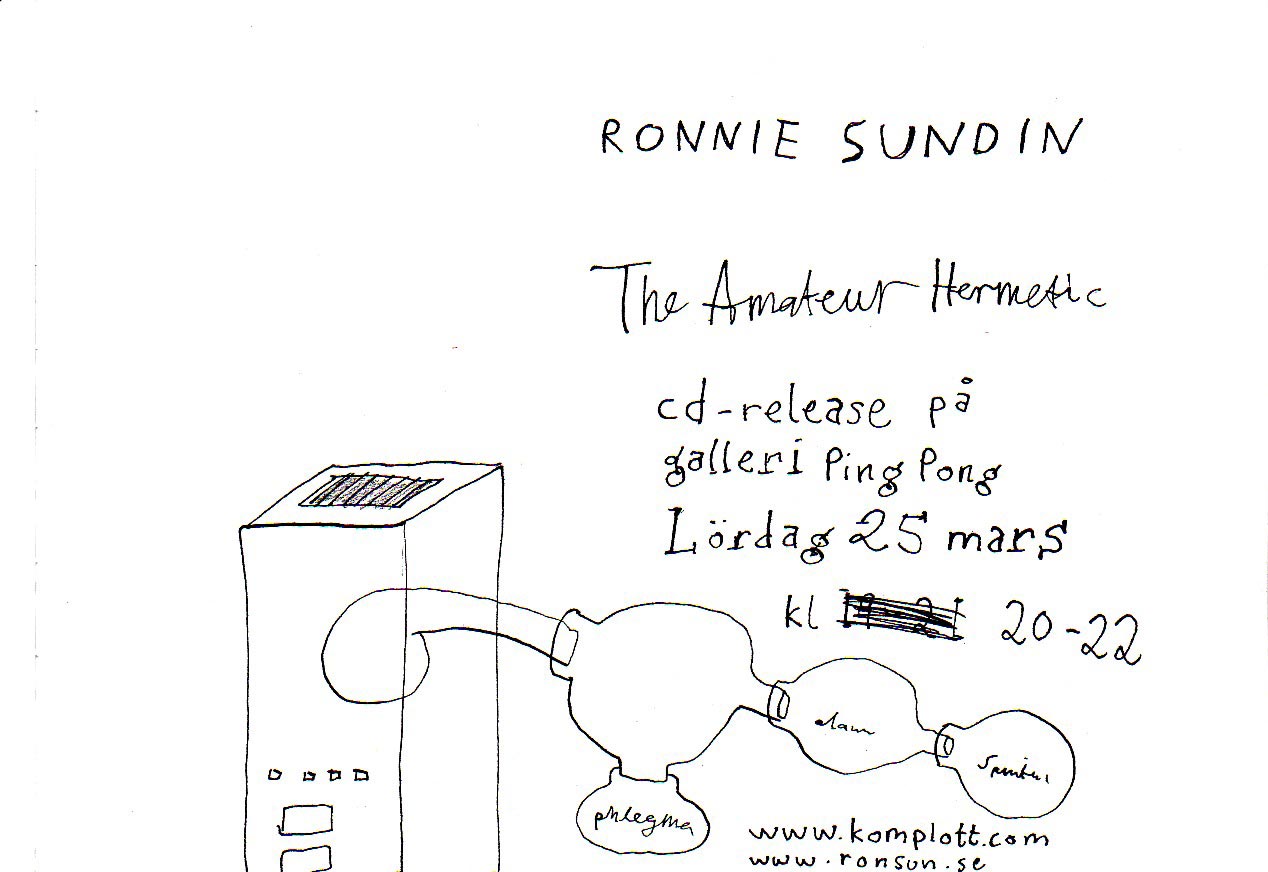 RONNIE SUNDIN
The Amateur Hermetic
cd-release på
galleri Ping Pong
Lördag 25 mars
kl 20-22
phlegma
www.komplott.com
www.ronsun.se